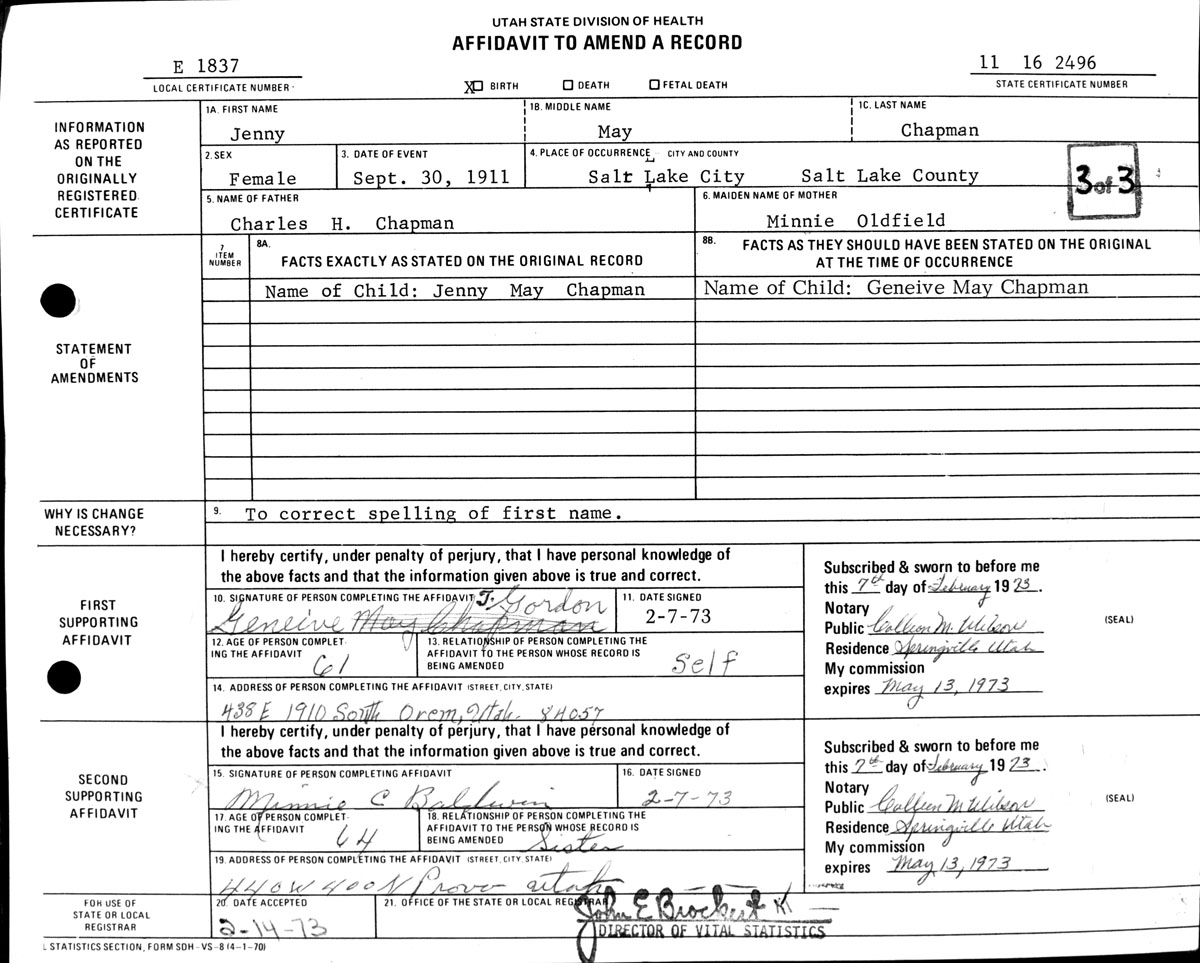 UTAH STATE DIVISION OF HEALTH
AFFIDAVIT TO AMEND A RECORD
E 1837
LOCAL CERTIFICATE NUMBER
X BIRTH DEATH FETAL DEATH
11 16 2496
STATE CERTIFICATE NUMBER
INFORMATION AS REPORTED ON THE ORIGINALLY REGISTERED CERTIFICATE
1A. FIRST NAME 1B. MIDDLE NAME 1C. LAST NAME
Jenny May Chapman
2. SEX 3. DATE OF EVENT 4. PLACE OF OCCURRENCE CITY AND COUNTY
Female Sept. 30, 1911 Salt Lake City Salt Lake County
3 of 3
5. NAME OF FATHER 6. MAIDEN NAME OF MOTHER
Charles H. Chapman Minnie Oldfield
STATEMENT OF AMENDMENTS
7 ITEM NUMBER
8A. FACTS EXACTLY AS STATED ON THE ORIGINAL RECORD
8B. FACTS AS THEY SHOULD HAVE BEEN STATED ON THE ORIGINAL
AT THE TIME OF OCCURRENCE
Name of Child: Jenny May Chapman Name of Child: Geneive May Chapman
WHY IS CHANGE NECESSARY?
9. To correct spelling of first name.
FIRST SUPPORTING AFFIDAVIT
I hereby certify, under penalty of perjury, that I have personal knowledge of
the above facts and that the information given above is true and correct.
10. SIGNATURE OF PERSON COMPLETING THE AFFIDAVIT 11. DATE SIGNED
Geneive May Chapman J. Gordon 2-7-73
12. AGE OF PERSON COMPLETING THE AFFIDAVIT
61
13. RELATIONSHIP OF PERSON COMPLETING THE
AFFIDAVIT TO THE PERSON WHOSE RECORD IS
BEING AMENDED Self
14. ADDRESS OF PERSON COMPLETING THE AFFIDAVIT (STREET, CITY, STATE)
438 E 1910 South Orem, Utah. 84057
Subscribed & sworn to before me
this 7th day of February 1973.
Notary
Public Colleen M. Wilson
Residence Springville Utah
My commission
expires May 13, 1973
(SEAL)
SECOND SUPPORTING AFFIDAVIT
I hereby certify, under penalty of perjury, that I have personal knowledge of
the above facts and that the information given above is true and correct.
15. SIGNATURE OF PERSON COMPLETING AFFIDAVIT 16. DATE SIGNED
Minnie C Baldwin 2-7-73
17. AGE OF PERSON COMPLETING THE AFFIDAVIT
64
18. RELATIONSHIP OF PERSON COMPLETING THE
AFFIDAVIT TO THE PERSON WHOSE RECORD IS
BEING AMENDED Sister
19. ADDRESS OF PERSON COMPLETING THE AFFIDAVIT (STREET, CITY, STATE)
440 W 400 N Provo Utah
Subscribed & sworn to before me
this 7th day of February 1973.
Notary
Public Colleen M. Wilson
Residence Springville Utah
My commission
expires May 13, 1973
(SEAL)
FOR USE OF STATE OR LOCAL REGISTRAR
20. DATE ACCEPTED 21. OFFICE OF THE STATE OR LOCAL REGISTRAR
2-14-73 John E Brockert
DIRECTOR OF VITAL STATISTICS
L STATISTICS SECTION, FORM SDH-VS-8 (4-1-70)